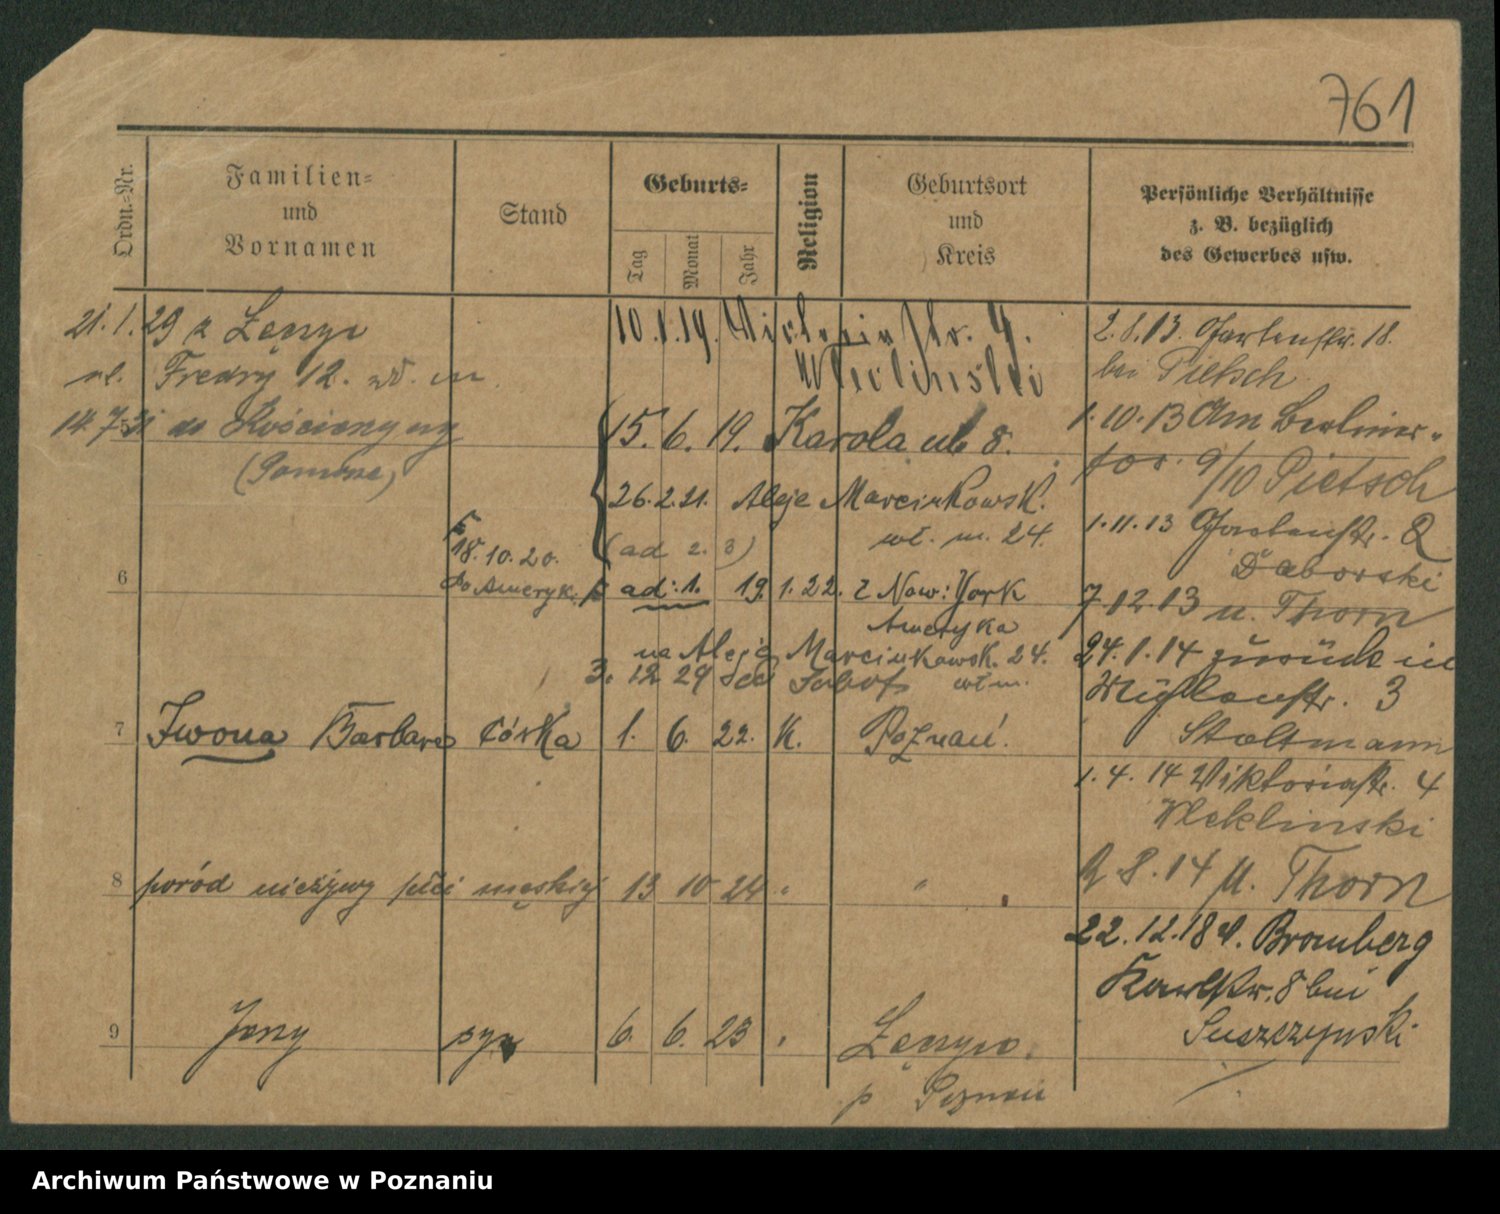 761
Ordn.-Nr.
Familien-
und
Vornamen
Stand
Geburts-
Tag
Monat
Jahr
Religion
Geburtsort
und
Kreis
Persönliche Verhältnisse
z. B. bezüglich
des Gewerbes usw.
21.1.29 z Lęczyc
ul. Fredry 12. wł. m.
14.7.31 do
10.1.19. Victoriastr. 4.
Wleclinski
15. 6. 19. Karola ul 8.
26.2.21. Aleje Marcinkowsk.
(ad 2. 3) wł. m. 24.
18.10.20.
do Ameryk.
ad: 1. 19.1.22. z Now: York
Ameryka
na Aleje Marcinkowsk. 24.
3. 12 29 wł m.
6
7
Iwona Barbara córka 1. 6. 22. K. Poznań.
8
poród nieżywy płci męskiej 13 10 24 " "
9
Jerzy syn 6. 6. 23 "
p Poznań
2.8.13. Gartenstr. 18.
bei Pietsch
1.10.13 Am Berliner-
tor. 9/10 Pietsch
1.11.13 Gartenstr. 2
Daborski
7.12.13 n. Thorn
24.1.14 zurück in
Mühlenstr. 3
Stoltmann
1.4.14 Viktoriastr. 4
Wleklinski
2 8.14 n. Thorn
22.12.18 v. Bromberg
Karlstr. 8 bei
Suszczynski
Archiwum Państwowe w Poznaniu